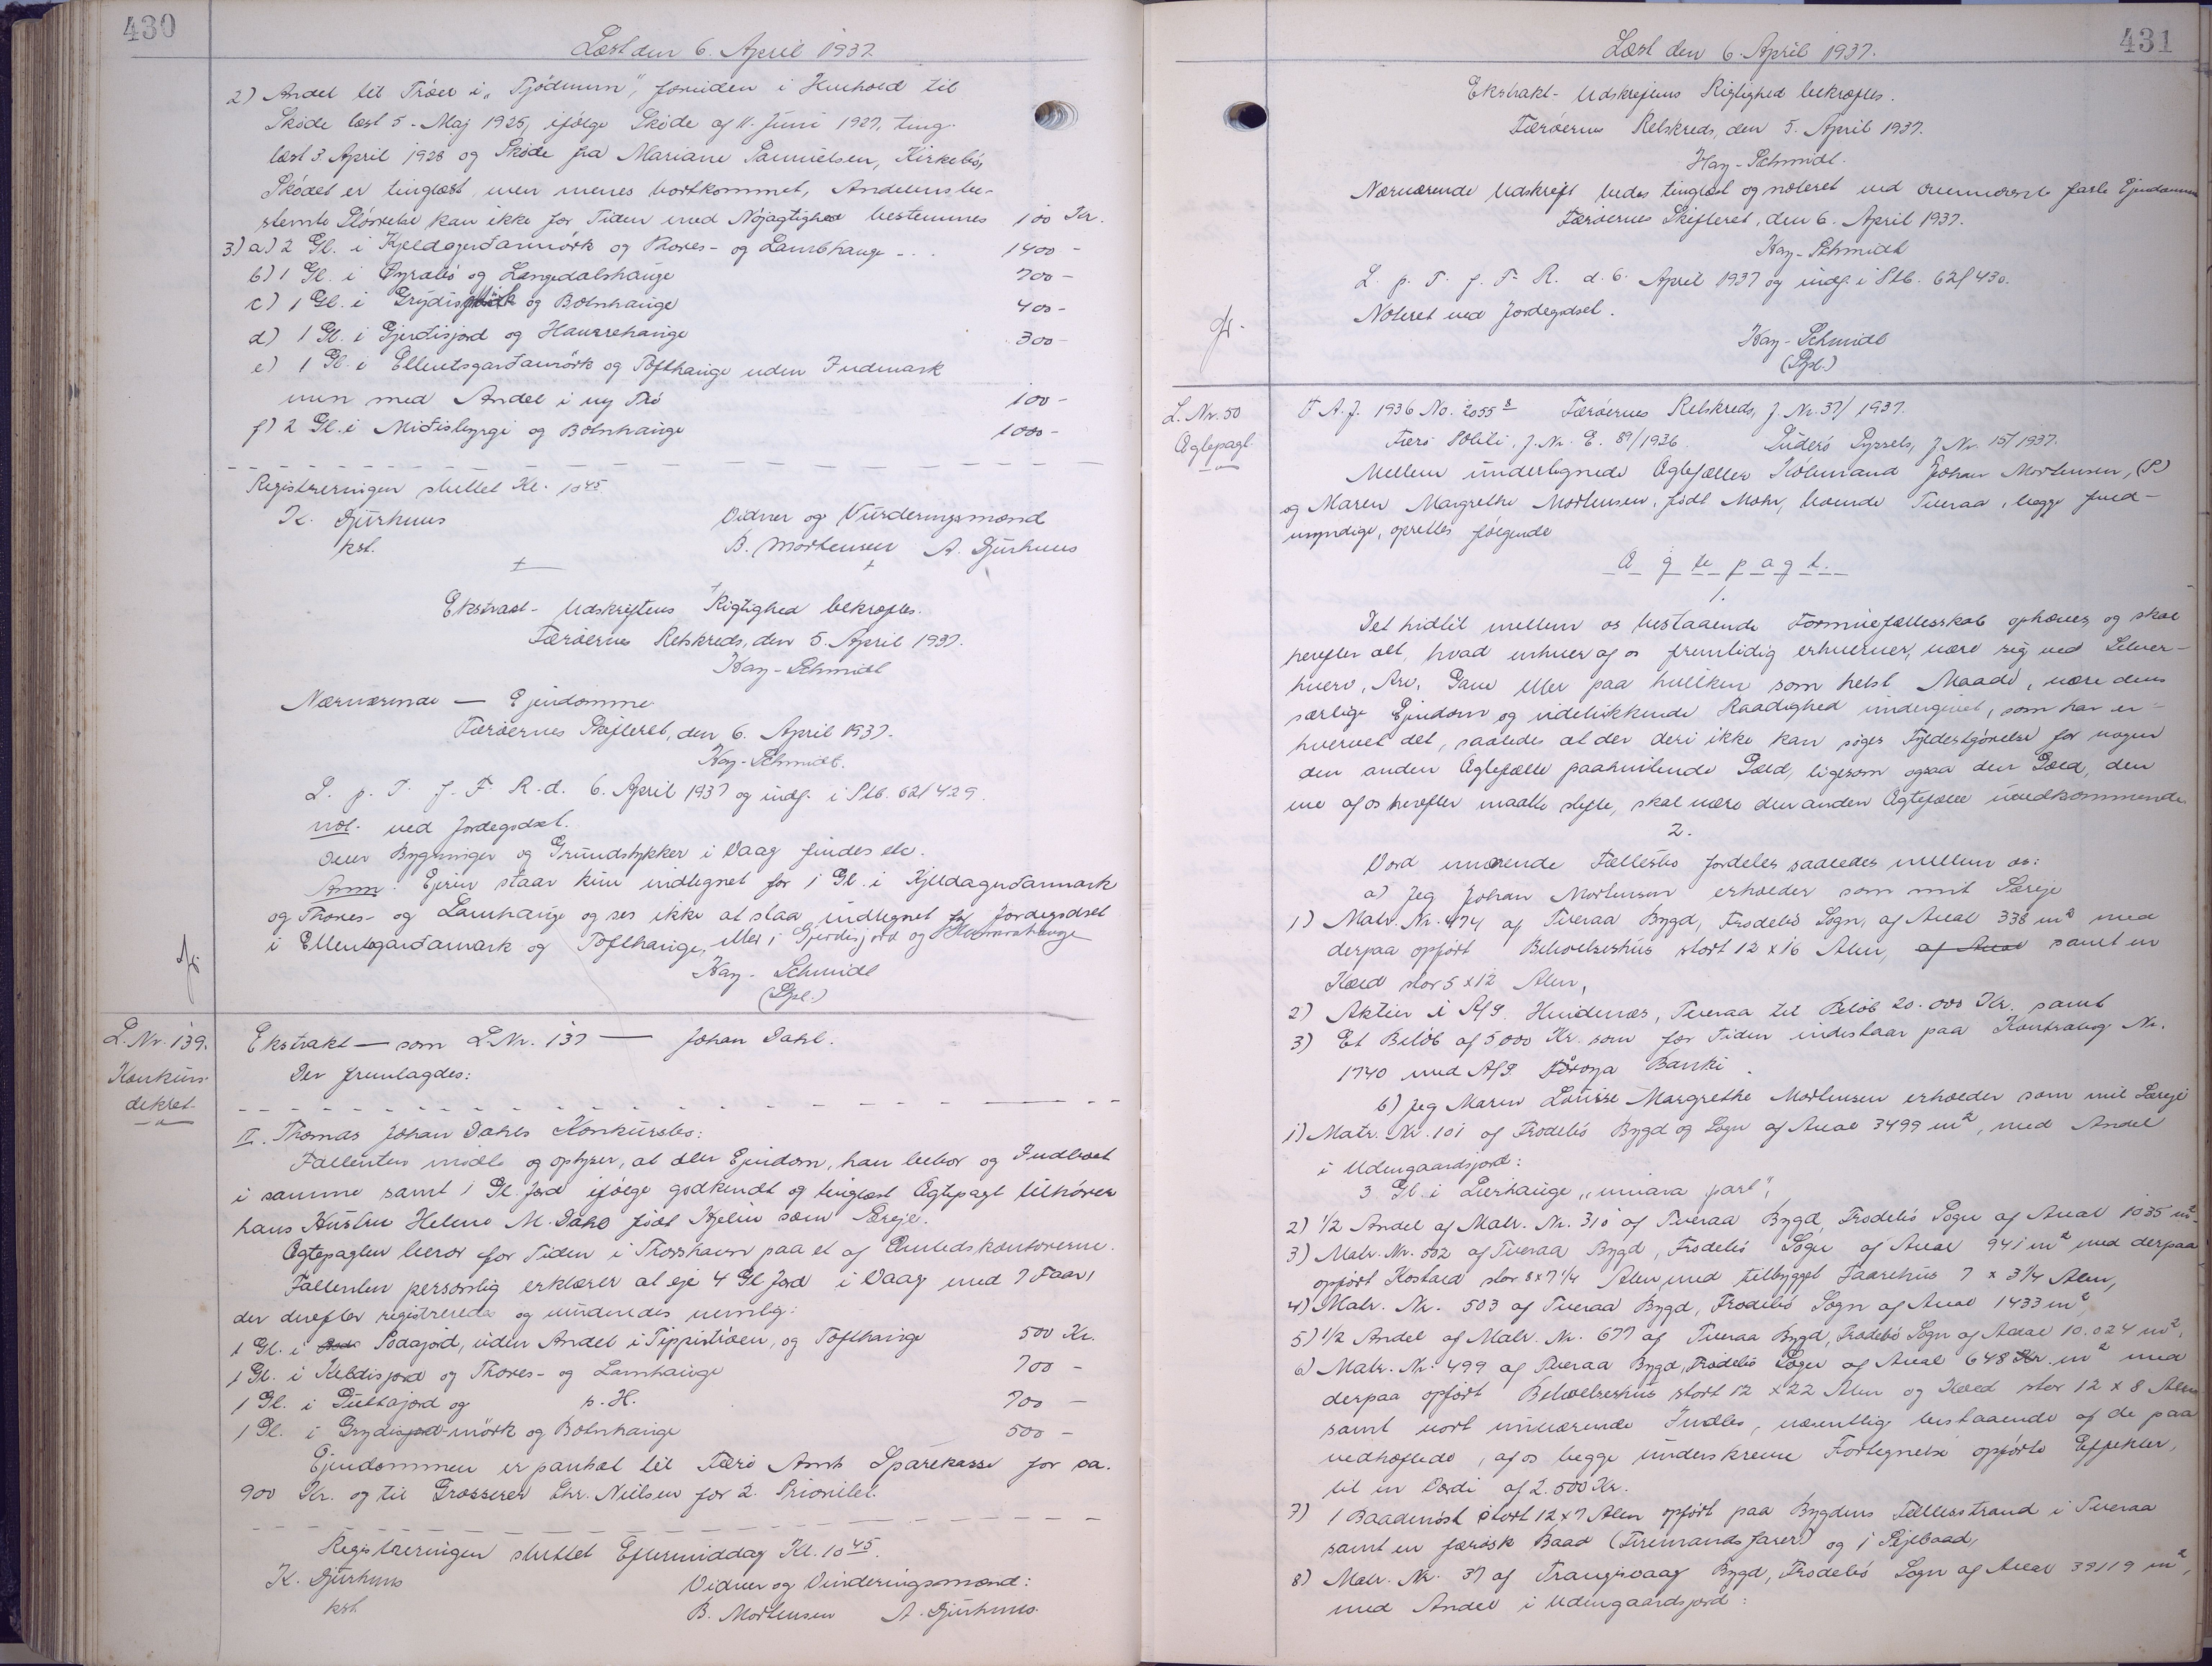 430
Læst den 6. April 1937.
2) Andel til Tróer i "Tjødnunn", foruden i Henhold til
Skøde læst 5. Maj 1925, ifølge Skøde af 11. Juni 1927, ting-
læst 3 April 1928 og Skøde fra Mariane Samuelsen, Kirkebø,
Skødet er tinglæst, men menes bortkommet, Andelens be-
stemte Størrelse kan ikke for Tiden med Nøjagtighed bestemmes 100 Kr.
3) a) 2 Gl. i Kjeldagerðanmörk og Thores- og Lambhauge - . . 1400 -
b) 1 Gl. i Oyrabø og Langedalshauge 700 -
c) 1 Gl. i og Botnhauge 400 -
d) 1 Gl. i Gjerðisjord og Hamrehauge 300 -
e) 1 Gl. i Ellentsgarðamörk og Tofthauge uden Indmark
men med Andel i ny Trö 100 -
f) 2 Gl. i Miðisbyrgi og Botnhauge 1000 -
Registreringen sluttet Kl. 10 45
K. Djurhuus Vidner og Vurderingsmænd
kst. B. Mortensen A. Djurhuus
Ekstrakt-Udskriftens Rigtighed bekræftes.
Færøernes Retskreds, den 5. April 1937.
Kay-Schmidt
Nærværende — Ejendomme
Færøernes Skifteret, den 6. April 1937.
Kay-Schmidt.
L. p. T. f. F. R. d. 6. April 1937 og indf. i Stb. 62/429.
not. ved Jordegodset.
Over Bygninger og Grundstykker i Vaag findes etc.
Anm. Ejeren staar kun indtegnet for 1 Gl. i Kjeldagerðanmark
og Thores- og Lamhauge og ses ikke at staa indtegnet for Jordegodset
i Ellentsgarðamark og Tofthauge, eller i Gjerdisjord og Hamrahauge
Kay-Schmidt
(Spl.)
L. Nr. 139. Ekstrakt — som L. Nr. 137 — Johan Dahl.
Konkurs- Der fremlagdes:
dekret
II. Thomas Johan Dahls Konkursbo:
Fallenten mødte og oplyser, at den Ejendom, han bebor og Indboet
i samme samt 1 Gl. Jord ifølge godkendt og tinglæst Ægtepagt tilhører
hans Hustru Helene M. Dahl født Kjelin som Særeje.
Ægtepagten beror for Tiden i Thorshavn paa et af Embedskontorerne.
Fallenten personlig erklærer at eje 4 Gl. Jord i Vaag med 7 Faar,
der derefter registreredes og vurderedes nemlig:
1 Gl. i Sodajord, uden Andel i Tippistróen, og Tofthauge 500 Kr.
1 Gl. i Keldisjord og Thores- og Lamhauge 700 -
1 Gl. i og p. H. 700 -
1 Gl. i Grydis-mörk og Botnhauge 500 -
Ejendommen er pantsat til Færö Amts Sparekasse for ca.
900 Kr. og til Grosserer Chr. Nielsen for 2. Prioritet.
Registreringen sluttet Eftermiddag Kl. 10 45.
K. Djurhuus Vidner og Vurderingsmænd:
kst. B. Mortensen A. Djurhuus.
431
Læst den 6. April 1937.
Ekstrakt-Udskriftens Rigtighed bekræftes.
Færøernes Retskreds, den 5. April 1937.
Kay-Schmidt.
Nærværende Udskrift bedes tinglæst og noteret ved ovennævnte faste Ejendomme
Færøernes Skifteret, den 6. April 1937.
Kay-Schmidt
L. p. T. f. F. R. d. 6. April 1937 og indf. i Stb. 62/430.
Noteret ved Jordegodset.
Kay-Schmidt
(Spl.)
L. Nr. 50 F A. J. 1936 No. 2055 8 Færøernes Retskreds, J. Nr. 37/1937.
Ægtepagt Færö Politi, J. Nr. E. 89/1936. Suderö Syssel, J. Nr. 15/1937.
Mellem undertegnede Ægtefæller Købmand Johan Mortensen, (P)
og Maren Margrethe Mortensen, født Mohr, boende Tveraa, begge fuld-
myndige, oprettes følgende
Ægtepagt.
1.
Det hidtil mellem os bestaaende Formuefællesskab ophæves og skal
herefter alt, hvad enhver af os fremtidig erhverver, være sig ved Selver-
hverv, Arv, Gave eller paa hvilken som helst Maade, være dens
særlige Ejendom og udelukkende Raadighed undergivet, som har er-
hvervet det, saaledes at der deri ikke kan søges Fyldestgørelse for nogen
den anden Ægtefælle paahvilende Gæld, ligesom ogsaa den Gæld, den
ene af os herefter maatte stifte, skal være den anden Ægtefælle uvedkommende
2.
Vort nuværende Fællesbo fordeles saaledes mellem os:
a) Jeg Johan Mortensen erholder som mit Særeje
1) Matr. Nr. 474 af Tveraa Bygd, Frodebö Sogn, af Areal 338 m² med
derpaa opført Beboelseshus stort 12 x 16 Alen, af Areal samt en
Kæld stor 5 x 12 Alen,
2) Aktier i A/S. Hvidenæs, Tveraa til Beløb 20.000 Kr. samt
3) Et Beløb af 5000 Kr. som for Tiden indestaar paa Kontrabog Nr.
1740 med A/S Föroya Banki.
b) Jeg Maren Louise Margrethe Mortensen erholder som mit Særeje
1) Matr. Nr. 101 af Frodebö Bygd og Sogn af Areal 3499 m², med Andel
i Udengaardsjord:
3 Gl. i Lierhauge "innara part",
2) 1/2 Andel af Matr. Nr. 310 af Tveraa Bygd, Frodebö Sogn af Areal 1035 m².
3) Matr. Nr. 502 af Tveraa Bygd, Frodebö Sogn af Areal 941 m² med derpaa
opført Kostald stor 8 x 7 1/4 Alen med tilbygget Faarehus 7 x 3 1/4 Alen,
4) Matr. Nr. 503 af Tveraa Bygd, Frodebö Sogn af Areal 1433 m²,
5) 1/2 Andel af Matr. Nr. 677 af Tveraa Bygd, Frodebö Sogn af Areal 10.024 m²,
6) Matr. Nr. 499 af Tveraa Bygd, Frodebö Sogn af Areal 648 Kr. m² med
derpaa opført Beboelseshus stort 12 x 22 Alen og Kæld stor 12 x 8 Alen
samt vort nuværende Indbo, væsentlig bestaaende af de paa
vedhæftede, af os begge underskrevne Fortegnelse opførte Effekter,
til en Værdi af 2.500 Kr.
7) 1 Baadenöst stort 12 x 7 Alen opført paa Bygdens Fællesstrand i Tveraa
samt en færøsk Baad (Firemandsfarer) og 1 Sejlbaad,
8) Matr. Nr. 37 af Trangisvaag Bygd, Frodebö Sogn af Areal 39119 m²,
med Andel i Udengaardsjord: